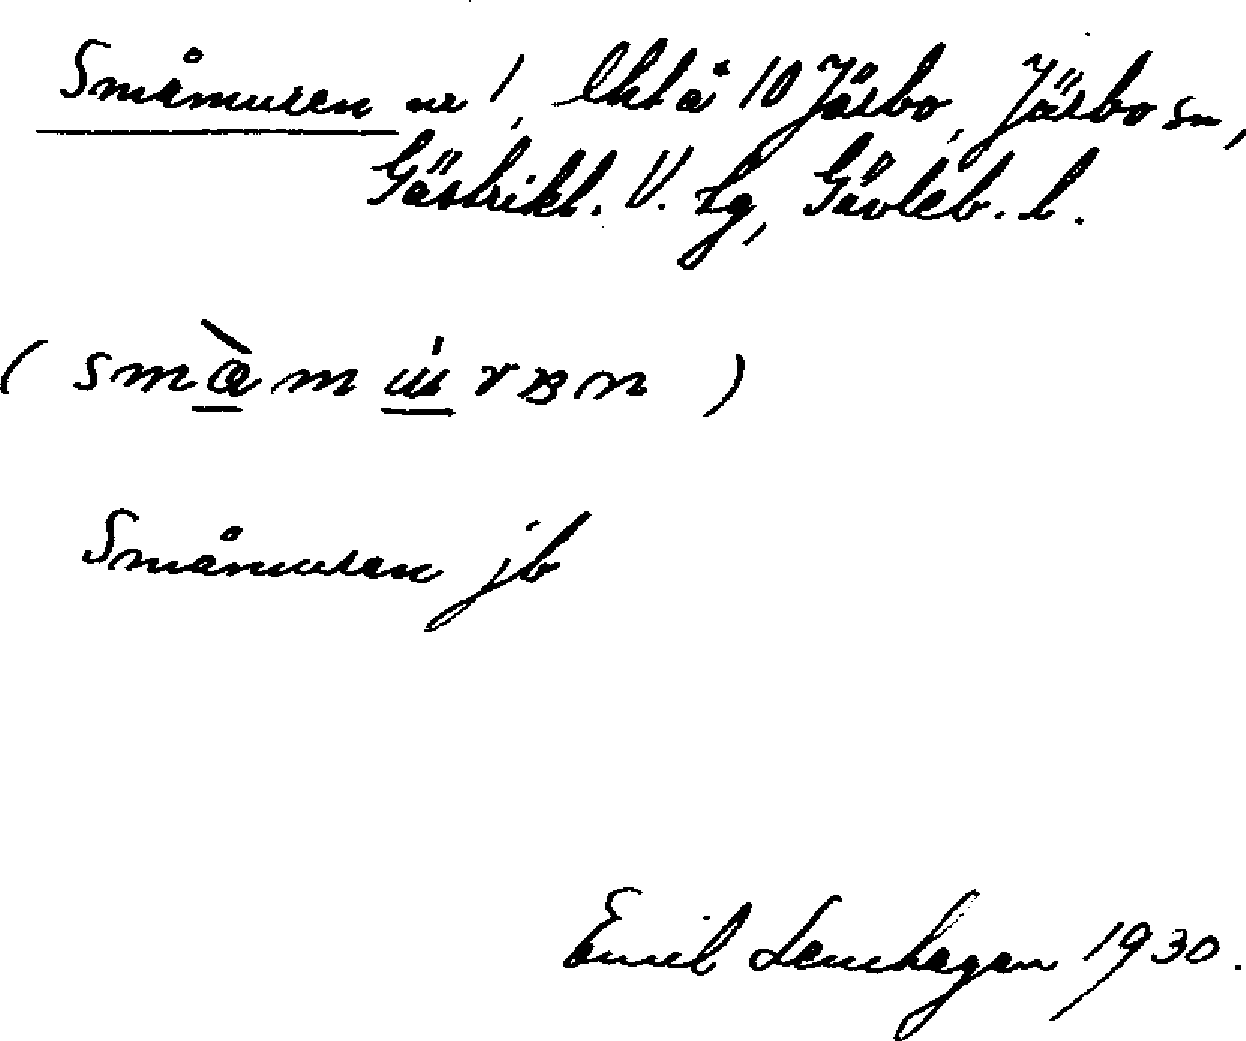 Småmuren nr 1, lht å 10 Järbo, Järbo sn,
Gästrikl. V. tg, Gävleb. l.
Småmuren jb
Emil Lenhagen 1930.